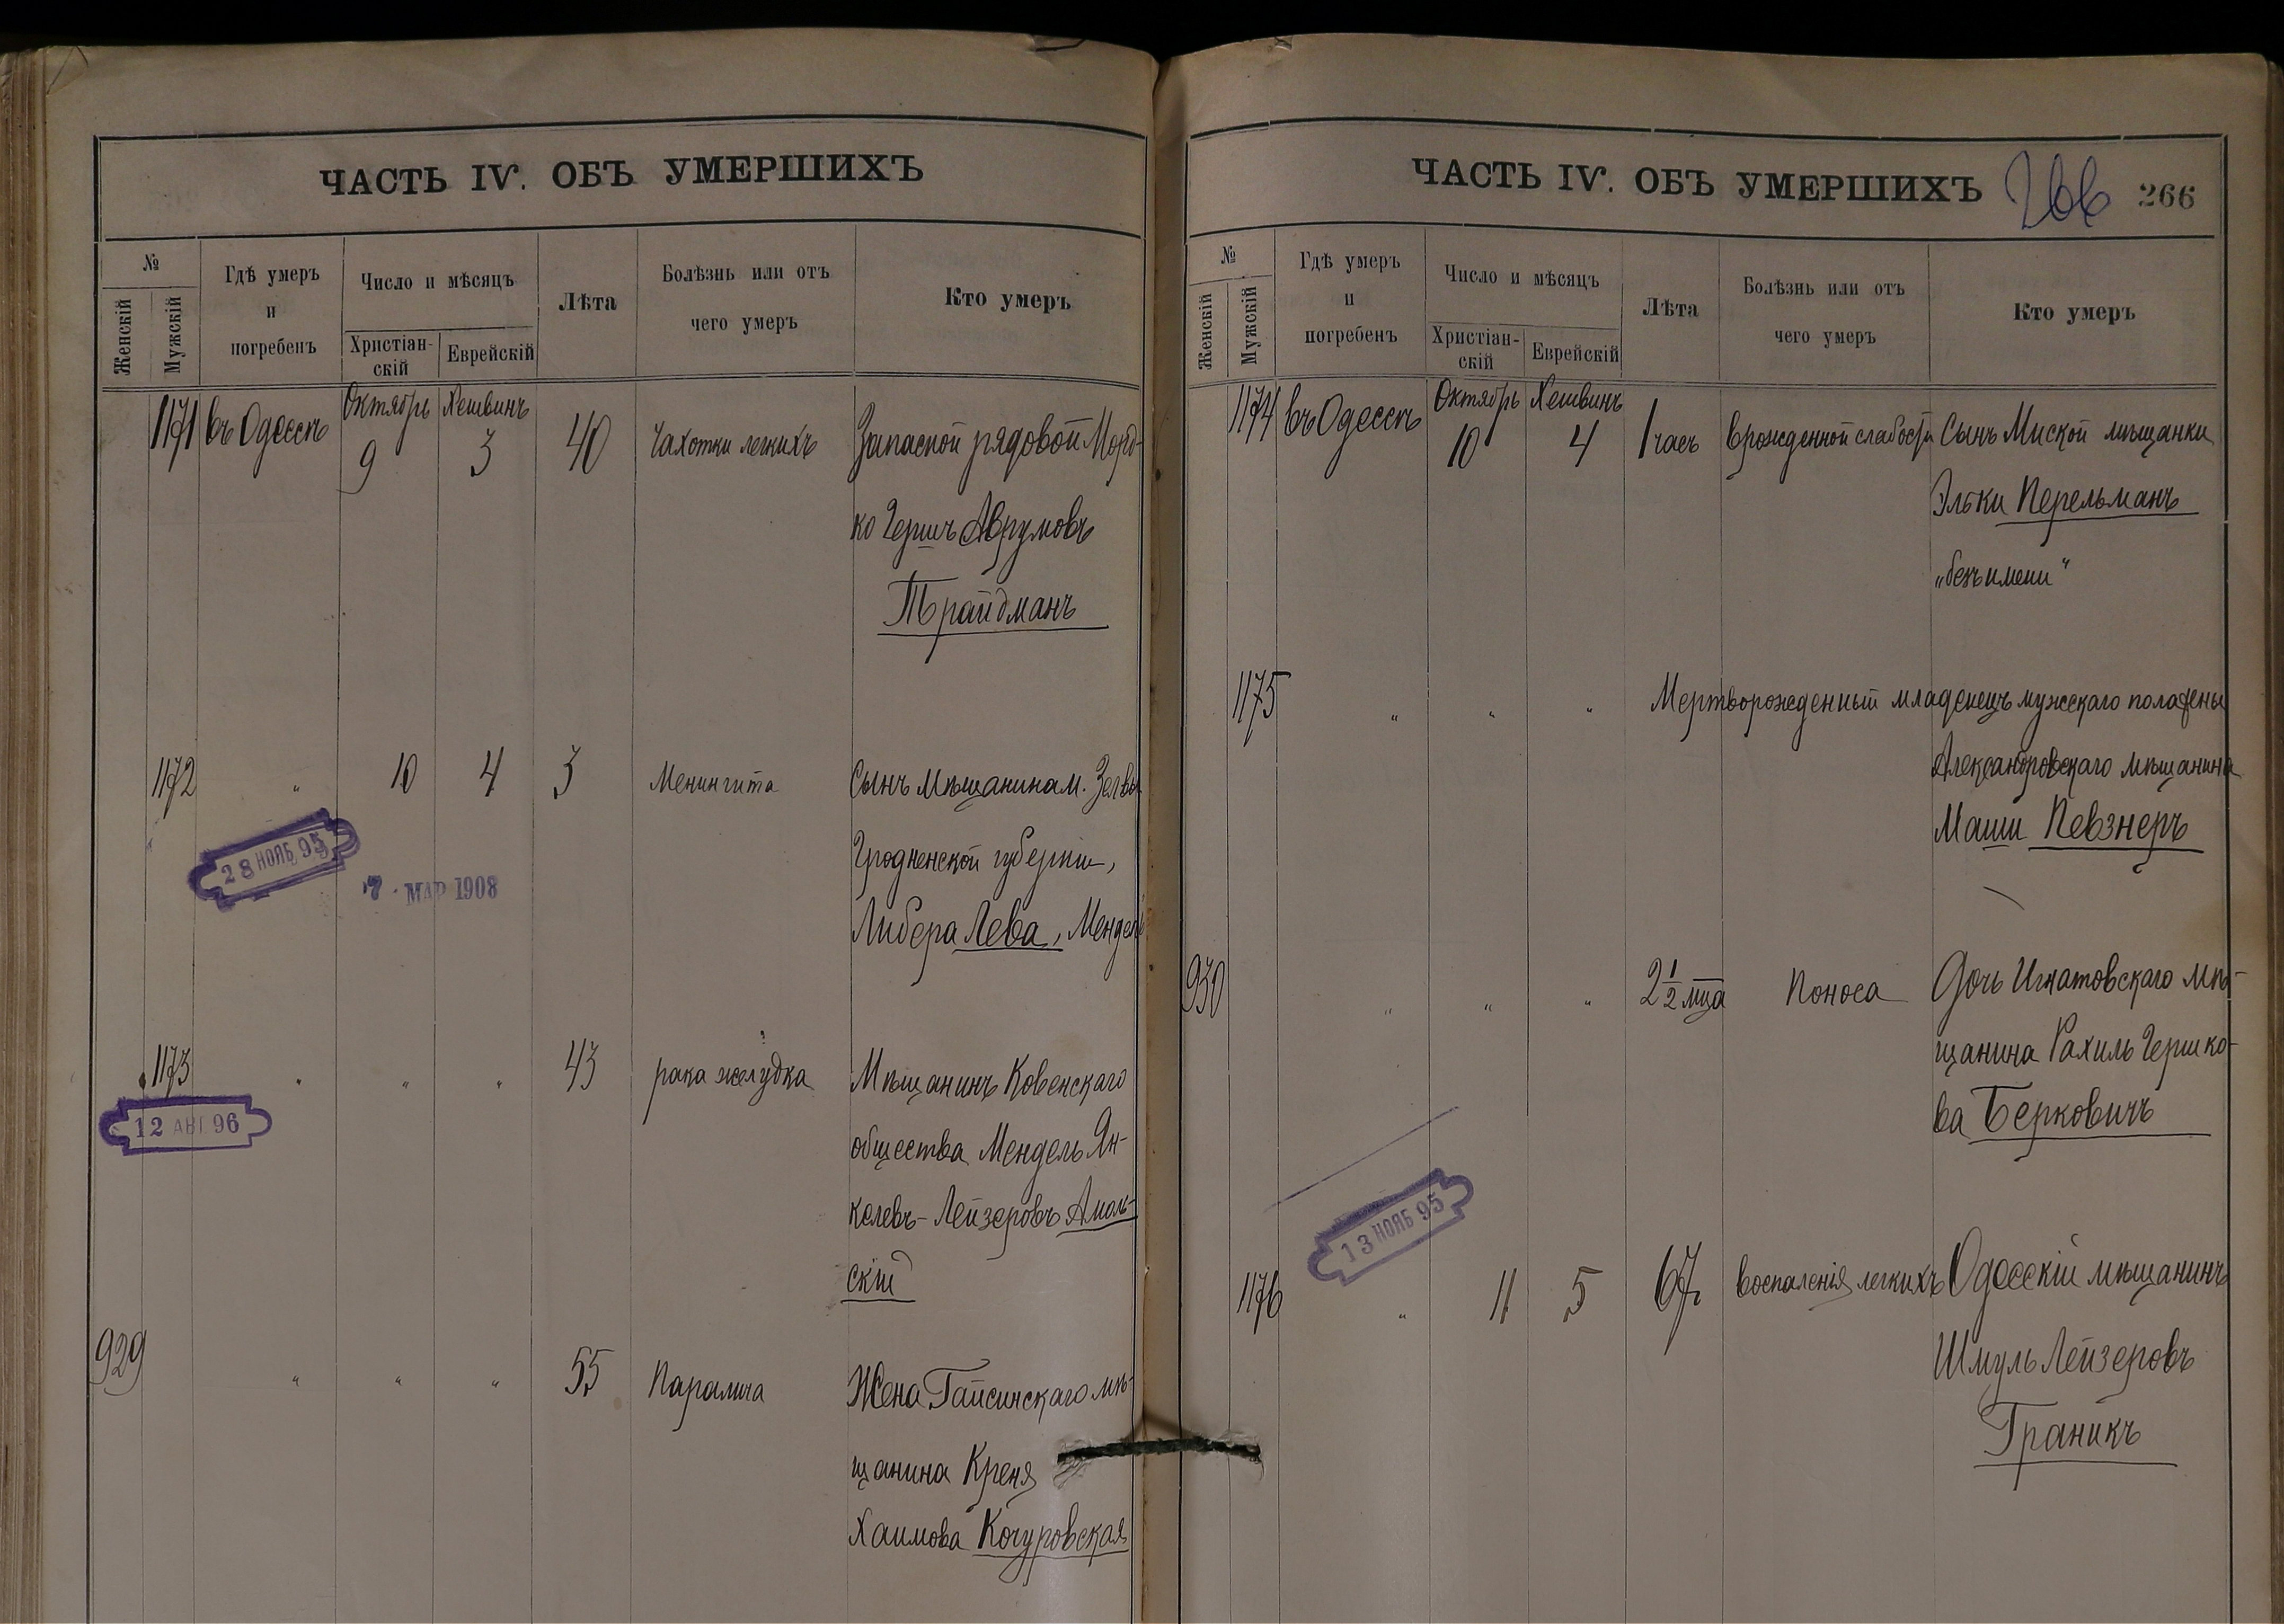 ЧАСТЬ IV. ОБЪ УМЕРШИХЪ
№
Женскій
Мужскій
Гдѣ умеръ
и
погребенъ
Число и мѣсяцъ
Христіан-
скій
Еврейскій
Лѣта
Болѣзнь или отъ
чего умеръ
Кто умеръ
1171 въ Одессѣ Октябрь 9 Хешвинъ 3 40 Чахотки легкихъ Запасной рядовой Морд-
ко Гершъ Аврумовъ
Трайдманъ
1172 " 10 4 3 Менингита Сынъ мѣщанина м. Зельвы
Гродненской губерніи,
Либера Лева, Мендель
28 НОЯБ 95
7 - МАР 1908
1173 " " " 43 рака желудка Мѣщанинъ Ковенскаго
общества Мендель Ян-
келевъ-Лейзеровъ
скій
12 АВГ 96
929 " " " 55 Паралича Жена Гайсинскаго мѣ-
щанина Креня
Хаимова Кочуровская
ЧАСТЬ IV. ОБЪ УМЕРШИХЪ 266 266
№
Женскій
Мужскій
Гдѣ умеръ
и
погребенъ
Число и мѣсяцъ
Христіан-
скій
Еврейскій
Лѣта
Болѣзнь или отъ
чего умеръ
Кто умеръ
1174 въ Одессѣ Октябрь 10 Хешвинъ 4 1 часъ врожденной слабости Сынъ мѣщанки
Эльки Перельманъ
„безъ имени“
1175 " " " Мертворожденный младенецъ мужскаго пола жены
Александровскаго мѣщанина
Маши Певзнеръ
930 " " " 2 1/2 мца Поноса Дочь Игнатовскаго мѣ-
щанина Рахиль Гершко-
ва Берковичъ
13 НОЯБ 95
1176 " 11 5 67 воспаленія легкихъ Одесскій мѣщанинъ
Шмуль Лейзеровъ
Граникъ